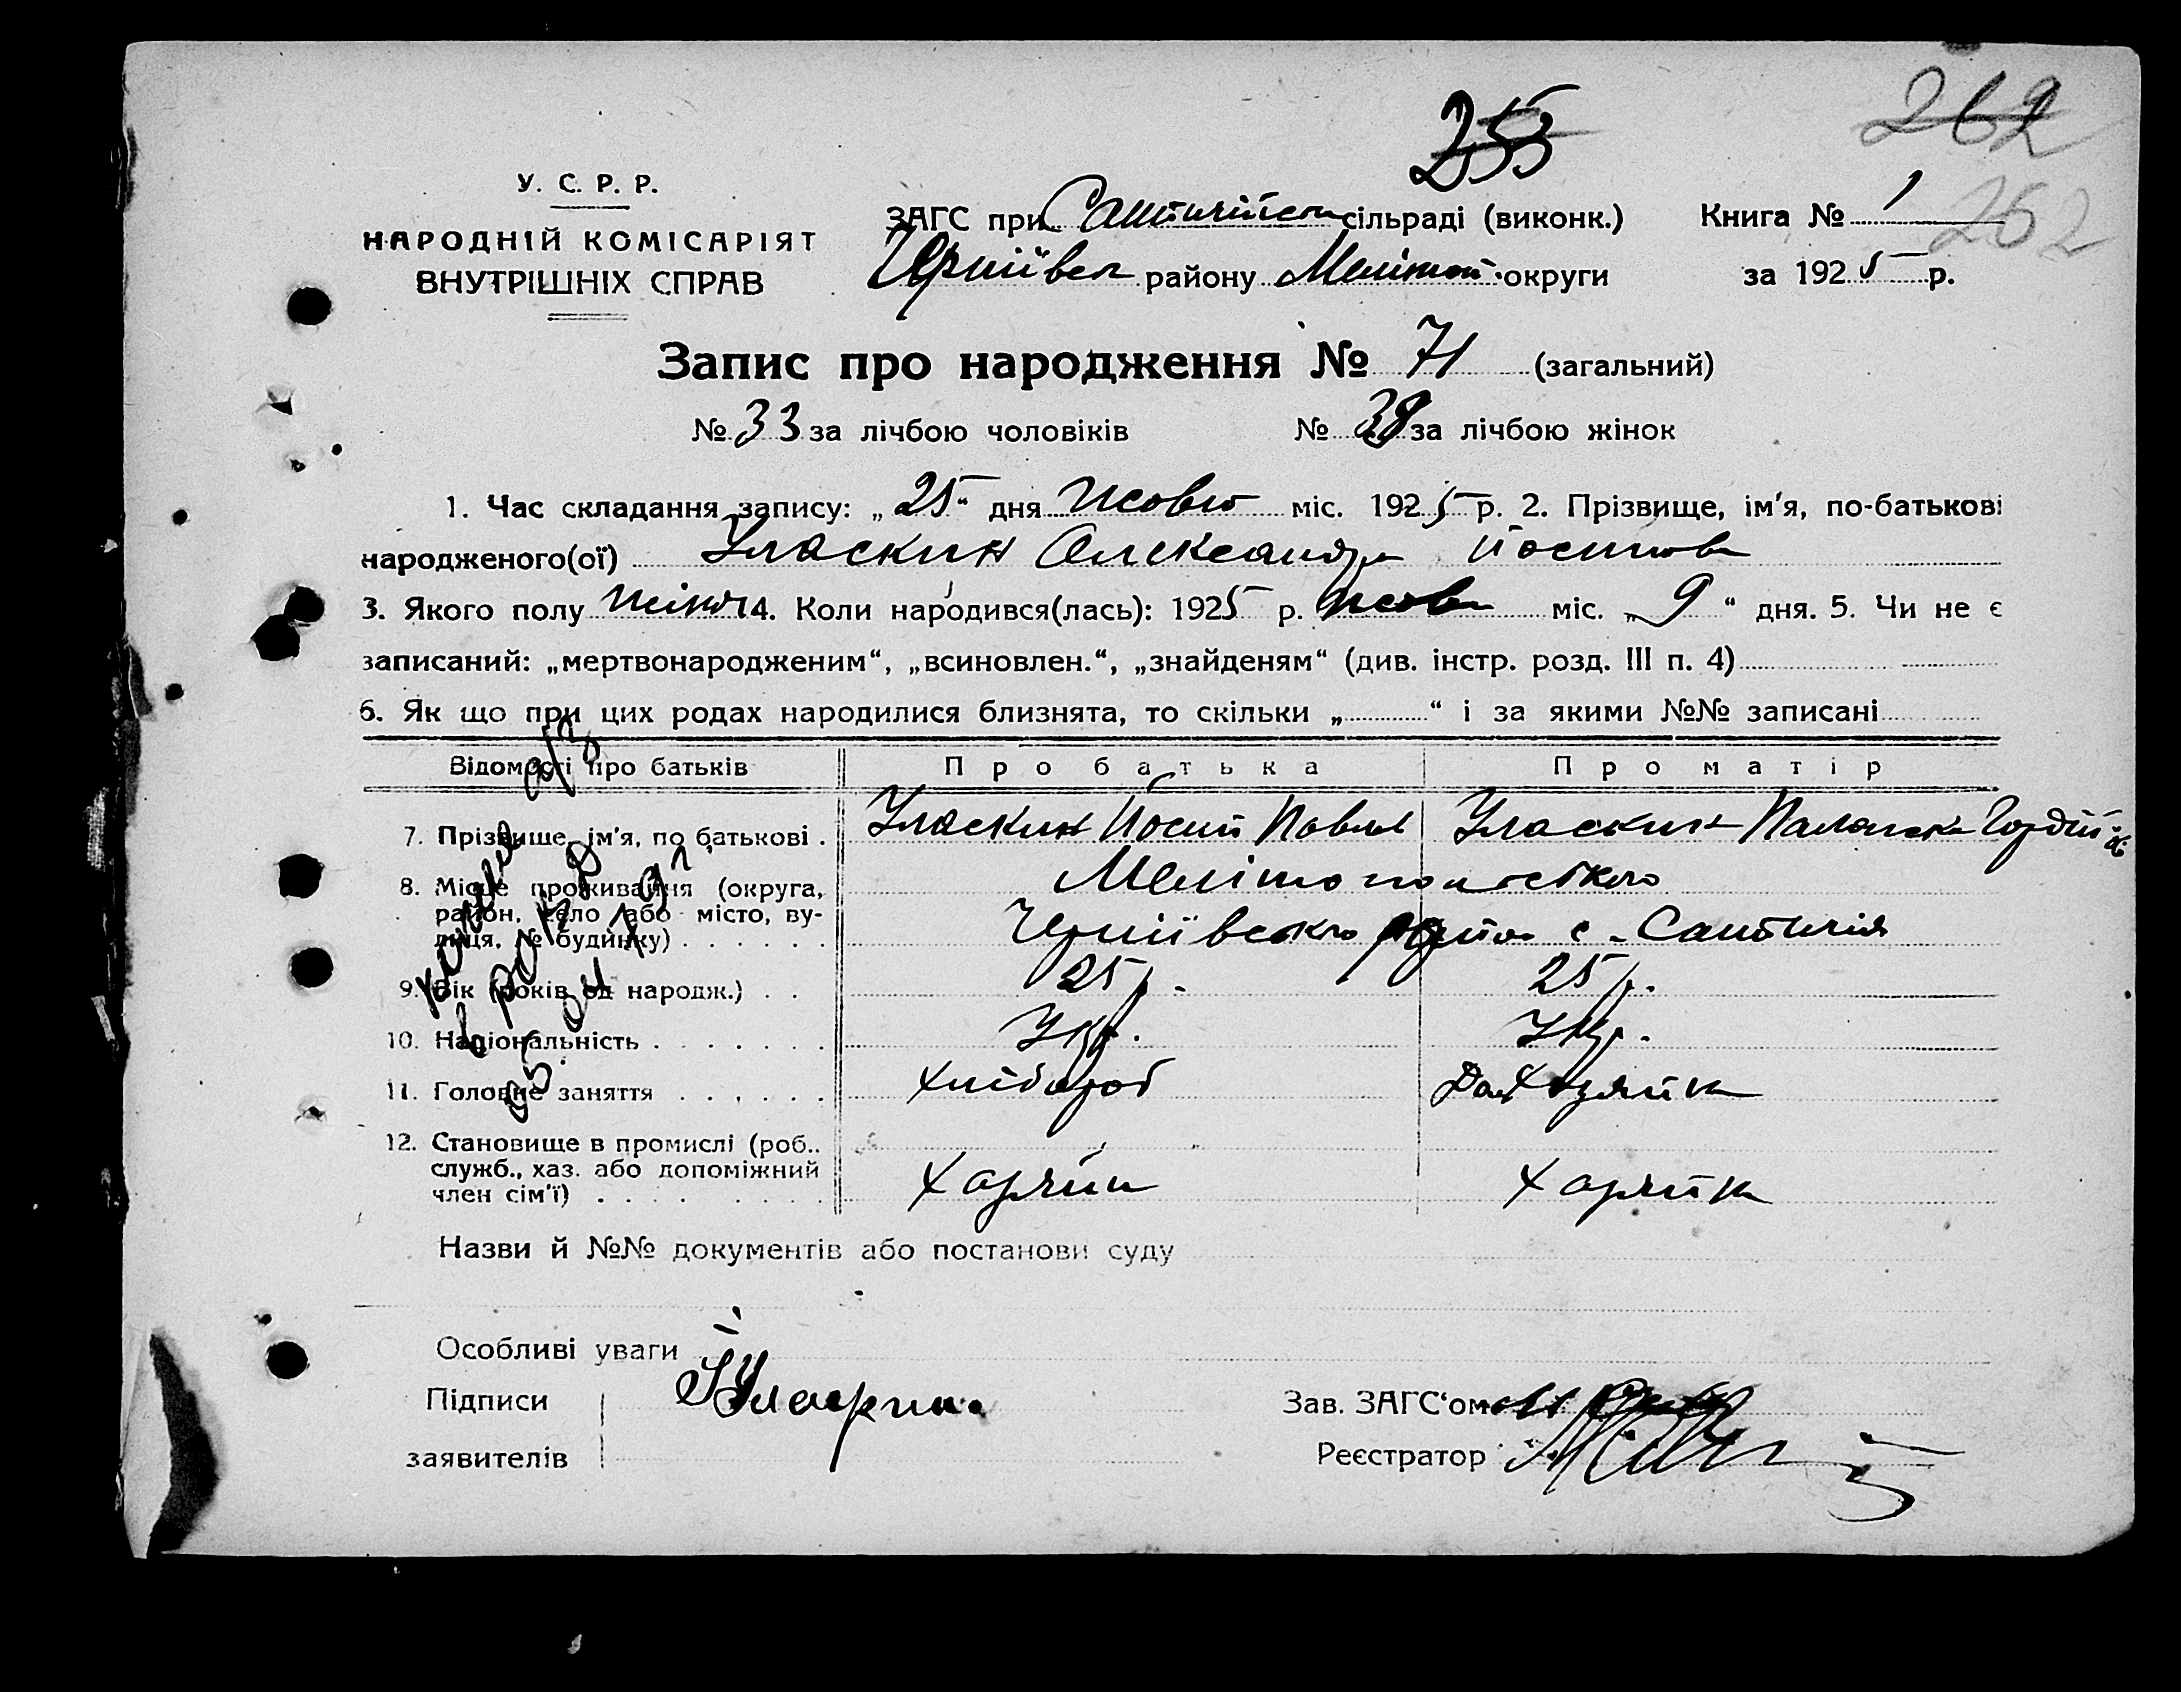 253
262
262
У. С. Р. Р.
НАРОДНІЙ КОМІСАРІЯТ
ВНУТРІШНІХ СПРАВ
ЗАГС при сільраді (виконк.)
району Меліт. округи
Книга № 1
за 1925 р.
Запис про народження № 71 (загальний)
№ 33 за лічбою чоловіків № 38 за лічбою жінок
1. Час складання запису: „25“ дня Жовт міс. 1925 р. 2. Прізвище, ім'я, по-батькові
народженого(ої) Уласкин Олександра
3. Якого полу жіноч 4. Коли народився(лась): 1925 р. жовт міс. „9“ дня. 5. Чи не є
записаний: „мертвонародженим“, „всиновлен.“, „знайденям“ (див. інстр. розд. III п. 4)
6. Як що при цих родах народилися близнята, то скільки „ “ і за якими №№ записані
Відомості про батьків Про батька Про матір
7. Прізвище, ім'я, по батькові . Уласкин Йосип Павлов Уласкин Палажка
8. Місце проживання (округа, Мелітопольського
район, село або місто, ву-
лиця, № будинку) . . . . . . с. Салтичія
9. Вік (років од народж.) . . 25 р. 25 р.
10. Національність . . . . . . . Укр. Укр.
11. Головне заняття . . . . . . Хлібороб Домхозяйка
12. Становище в промислі (роб..
служб., хаз. або допоміжний
член сім'ї) . . . . . . . . . Хазяїн Хазяйка
Назви й №№ документів або постанови суду
Особливі уваги
Підписи
заявителів
Зав. ЗАГС'ом
Реєстратор